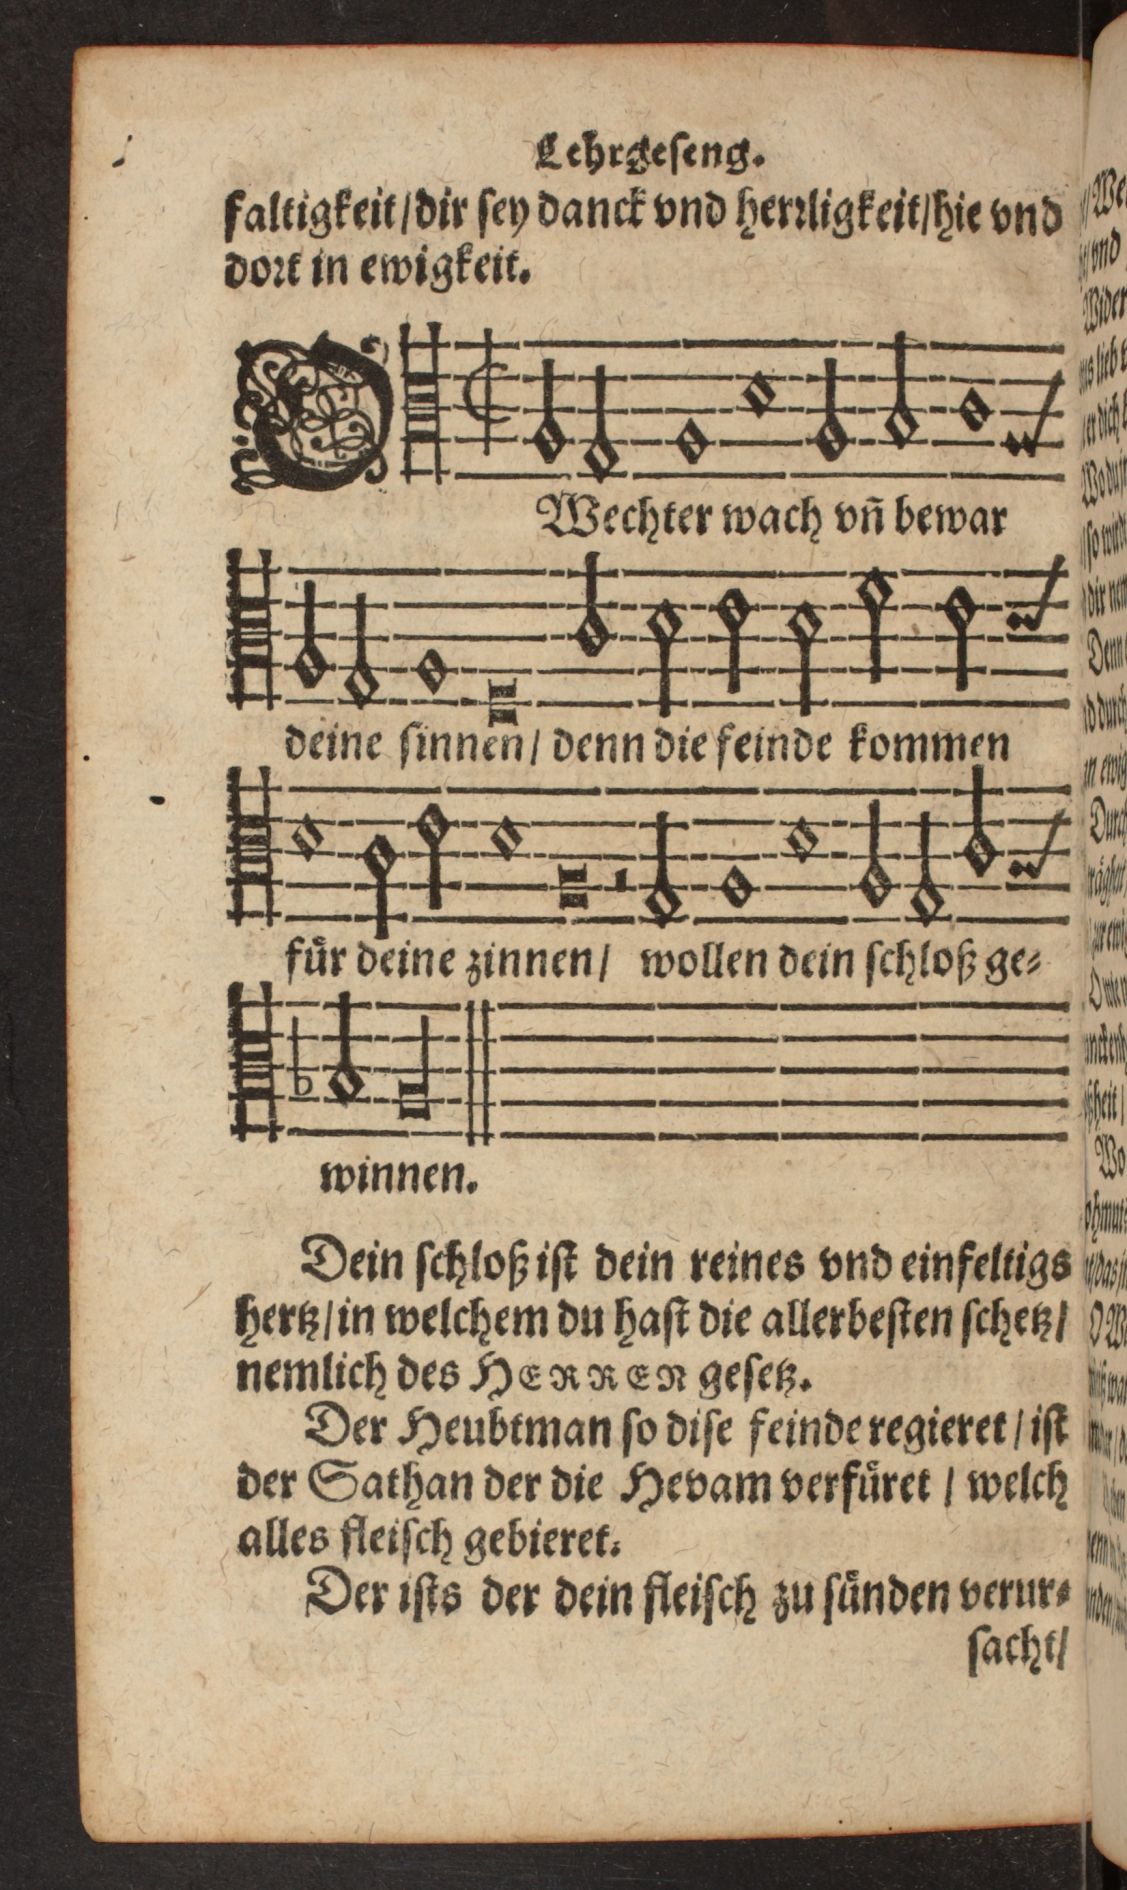 Lehrgeſeng.
faltigkeit/dir ſey danck vnd herꝛligkeit/hie vnd
doꝛt in ewigkeit.
O
Wechter wach vñ bewar
deine ſinnen/ denn die feinde kommen
fuͤr deine zinnen/ wollen dein ſchloß ge⸗
winnen.
Dein ſchloß iſt dein reines vnd einfeltigs
hertz/in welchem du haſt die allerbeſten ſchetz/
nemlich des HERREN geſetz.
Der Heubtman ſo diſe feinde regieret/ iſt
der Sathan der die Hevam verfuͤret / welch
alles fleiſch gebieret.
Der iſts der dein fleiſch zu ſuͤnden verur⸗
ſacht/